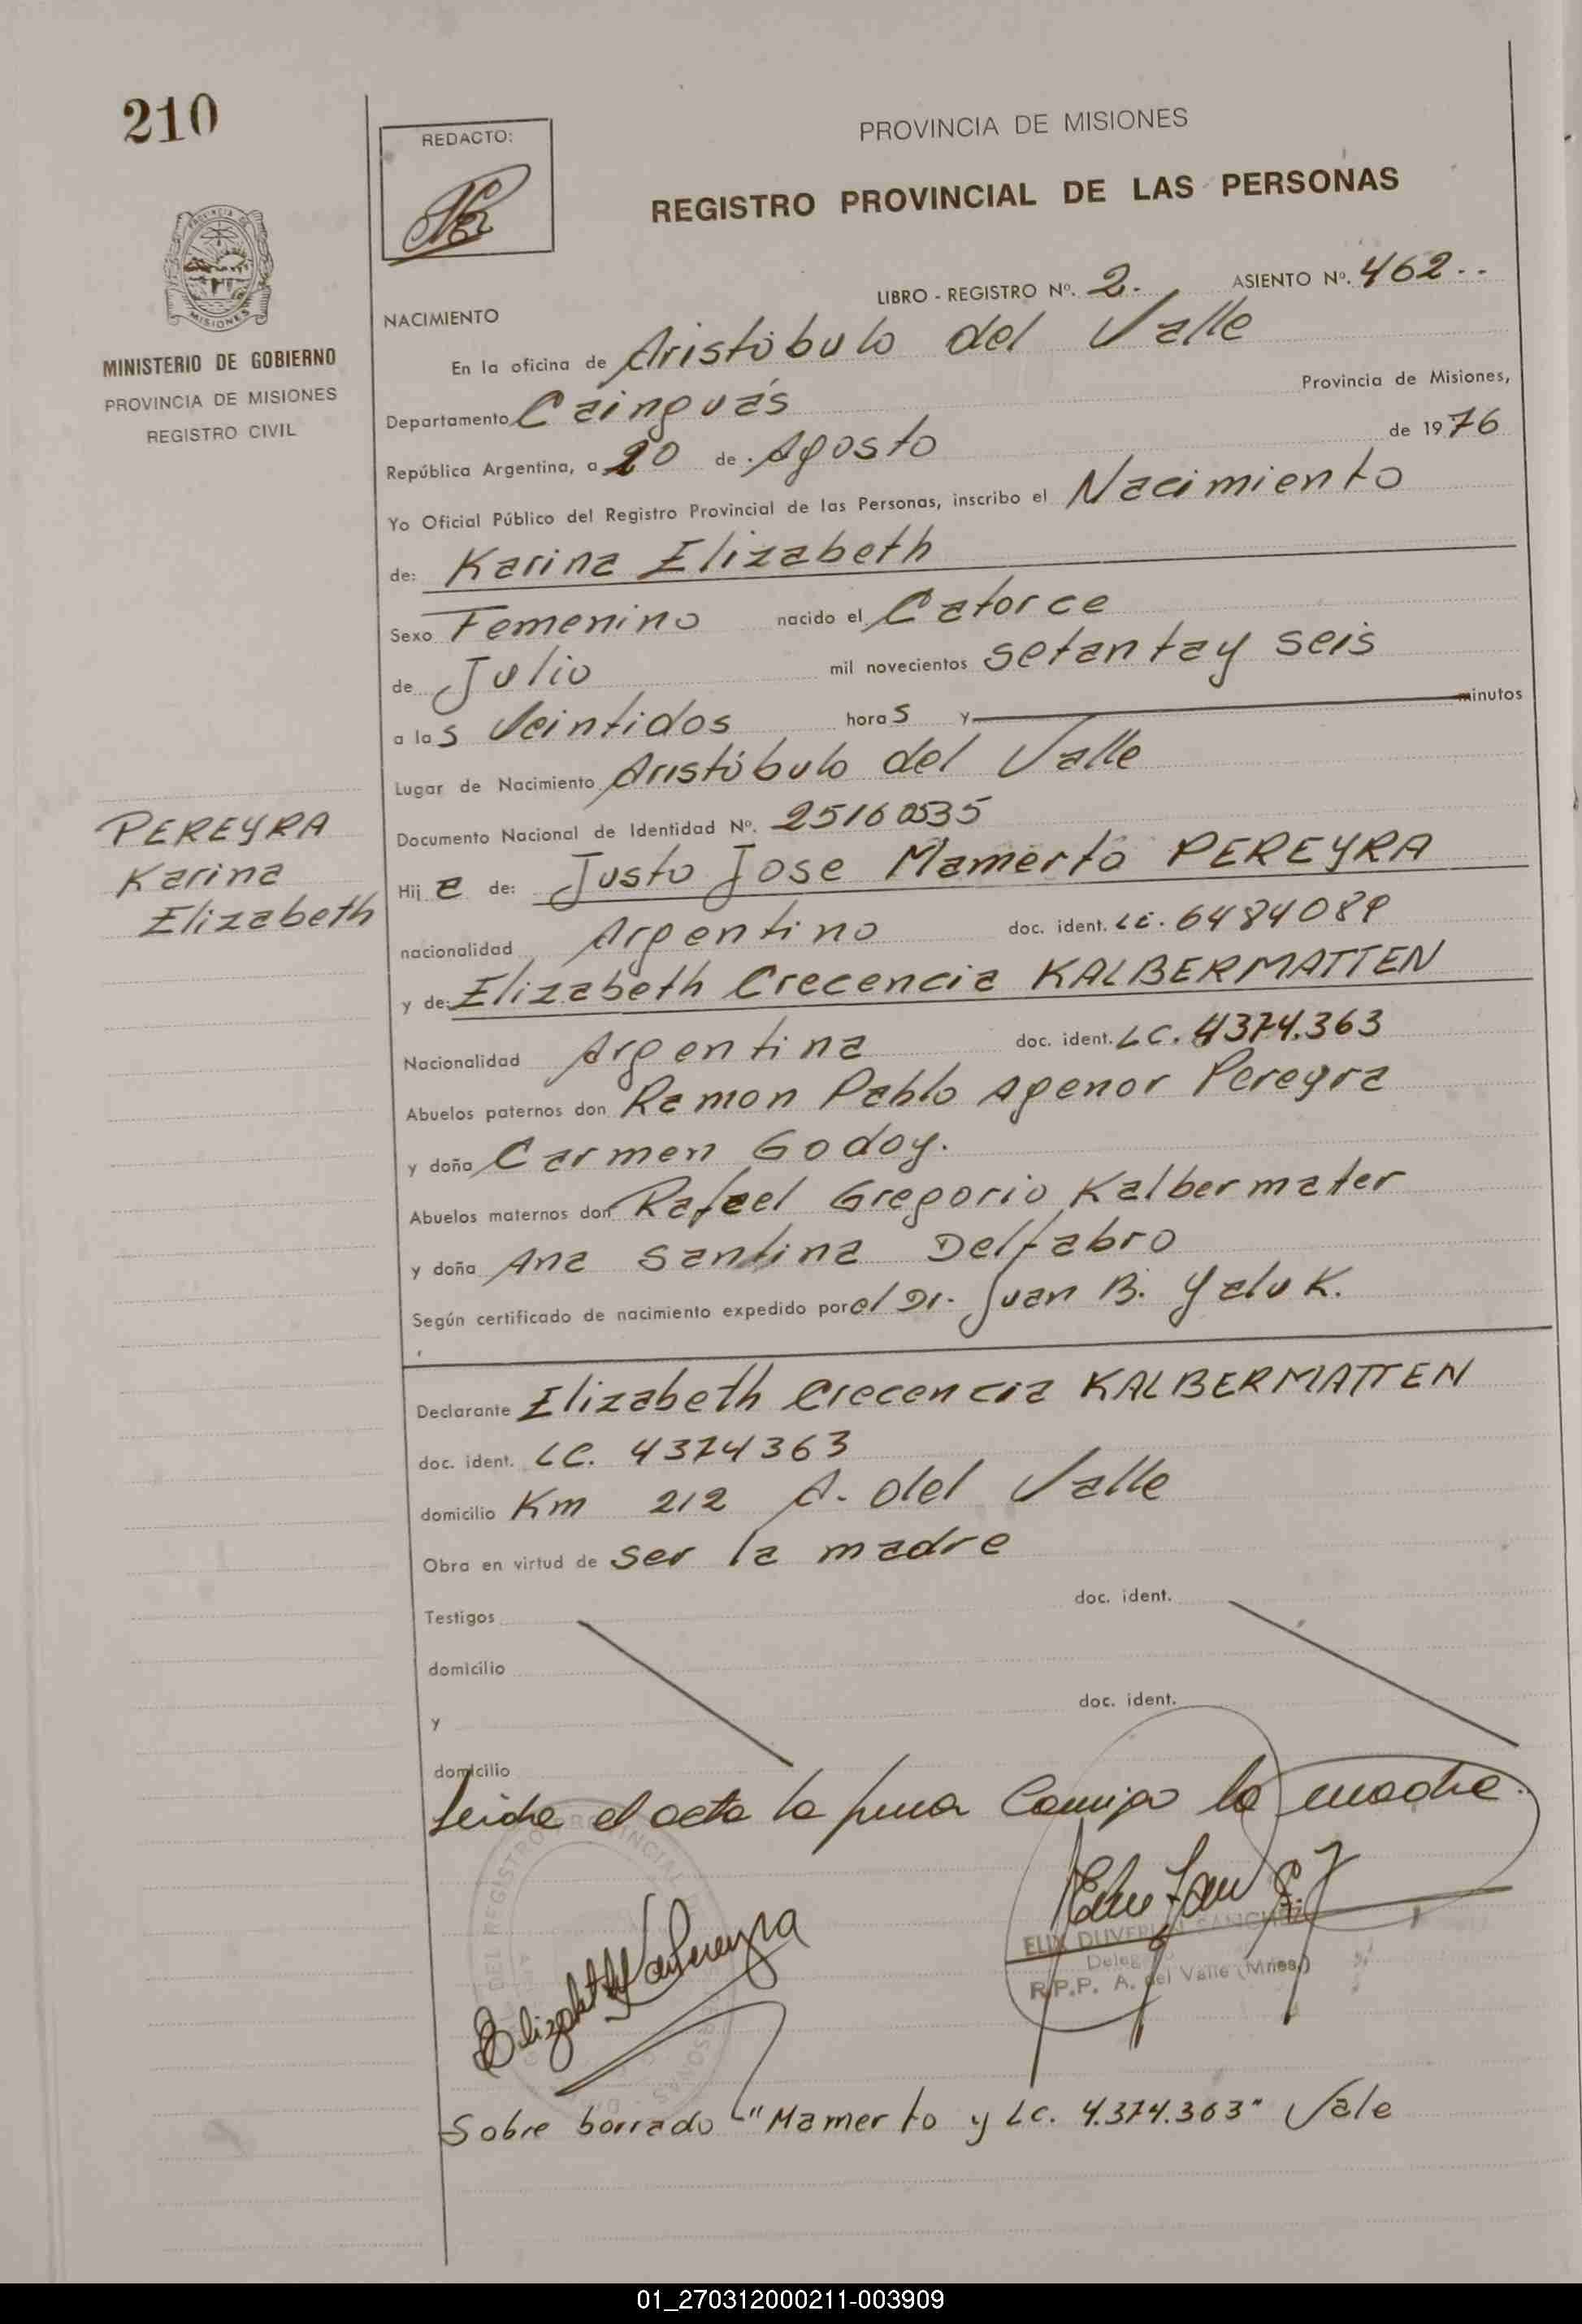 210
REDACTO:
PROVINCIA DE MISIONES
REGISTRO PROVINCIAL DE LAS PERSONAS
LIBRO - REGISTRO Nº. 2. ASIENTO Nº. 462..
MISIONES
MINISTERIO DE GOBIERNO
PROVINCIA DE MISIONES
REGISTRO CIVIL
NACIMIENTO
En la oficina de Aristóbulo del Valle
Departamento Cainguás Provincia de Misiones,
República Argentina, a 20 de Agosto de 1976
Yo Oficial Público del Registro Provincial de las Personas, inscribo el Nacimiento
de: Karina Elizabeth
Sexo Femenino nacido el Catorce
de Julio mil novecientos setenta y seis
a las Veintidos horas y minutos
Lugar de Nacimiento Aristóbulo del Valle
PEREYRA
Karina
Elizabeth
Documento Nacional de Identidad Nº. 25160535
Hija de: Justo Jose Mamerto PEREYRA
nacionalidad Argentino doc. ident. LE. 6484089
y de: Elizabeth Crecencia KALBERMATTEN
Nacionalidad Argentina doc. ident. LC. 4374.363
Abuelos paternos don Ramon Pablo Agenor Pereyra
y doña Carmen Godoy.
Abuelos maternos don Rafael Gregorio Kalbermater
y doña Ana Santina Delfabro
Según certificado de nacimiento expedido por el Dr. Juan B. Yaluk.
Declarante Elizabeth Crecencia KALBERMATTEN
doc. ident. LC. 4374363
domicilio Km 212 A. del Valle
Obra en virtud de ser la madre
Testigos doc. ident.
domicilio
y doc. ident.
domicilio
Leida el acta la firma Conmigo la madre.
ELIX SANCHEZ
R.P.P. A. del Valle (Mnes.)
Sobre borrado "Mamerto y LC. 4.374.363" Vale
01_270312000211-003909